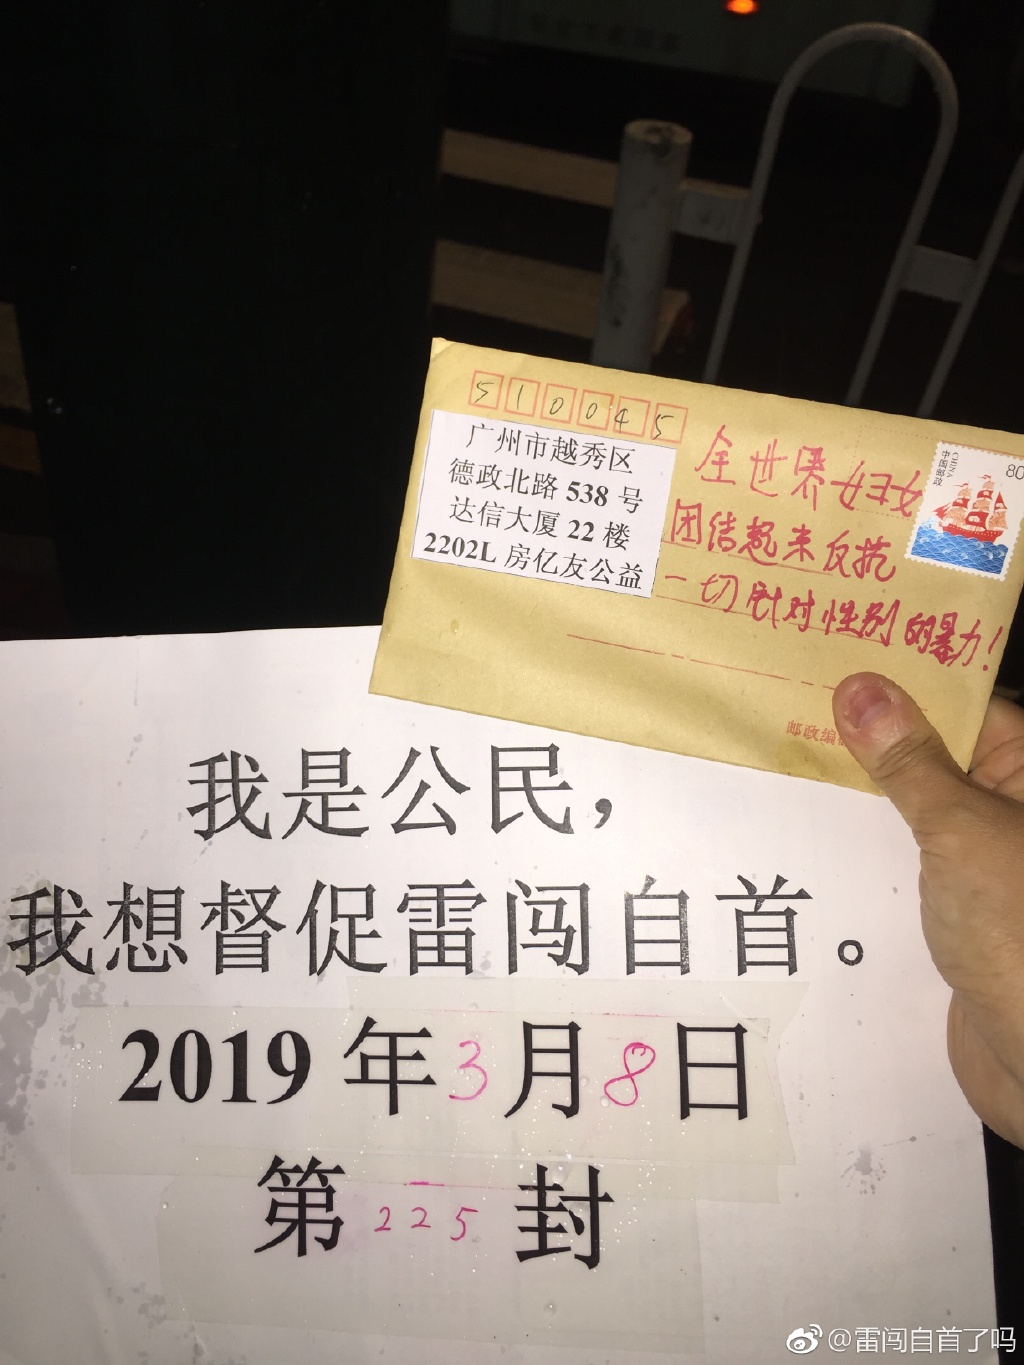 510045
广州市越秀区
德政北路 538 号
达信大厦 22 楼
2202L 房亿友公益
全世界妇女
团结起来反抗
一切针对性别的暴力!
80
中国邮政
CHINA
邮政编
我是公民,
我想督促雷闯自首。
2019 年 3 月 8 日
第 225 封
@雷闯自首了吗